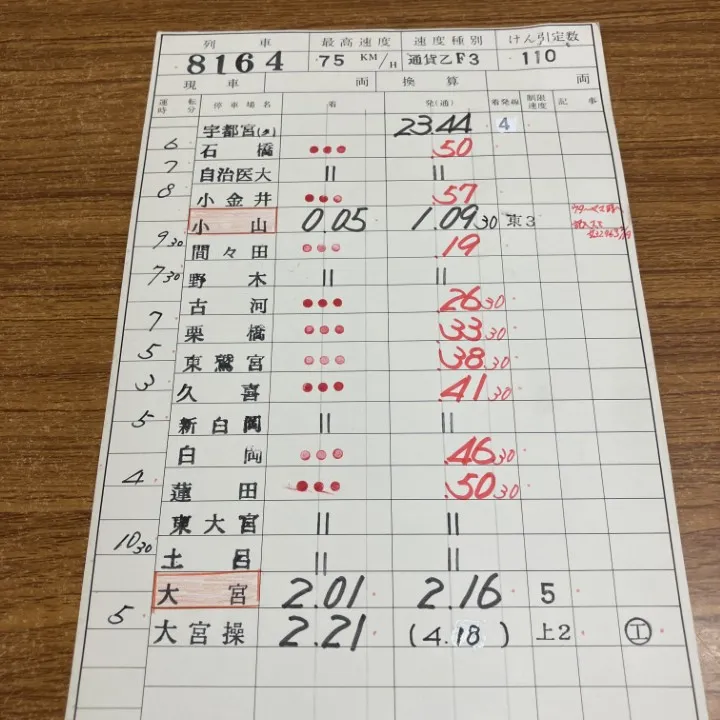 列 車 最高速度 速度種別 けん引定数
8164 75 KM/H 通貨乙F3 110
現車 両 換算 両
運転時分 停車場名 着 発(通) 着発線 制限速度 記事
宇都宮(タ) 23.44 4
6 石橋 ●●● .50
7 自治医大 || ||
8 小金井 ●●● .57
小山 0.05 1.09 30 東3
9 30 間々田 ●●● .19
7 30 野木 || ||
古河 ●●● .26 30
7 栗橋 ●●● .33 30
5 東鷲宮 ●●● .38 30
3 久喜 ●●● .41 30
5 新白岡 || ||
白岡 ●●● .46 30
4 蓮田 ●●● .50 30
東大宮 || ||
10 30 土呂 || ||
大宮 2.01 2.16 5
5 大宮操 2.21 (4.18) 上2 ㊓